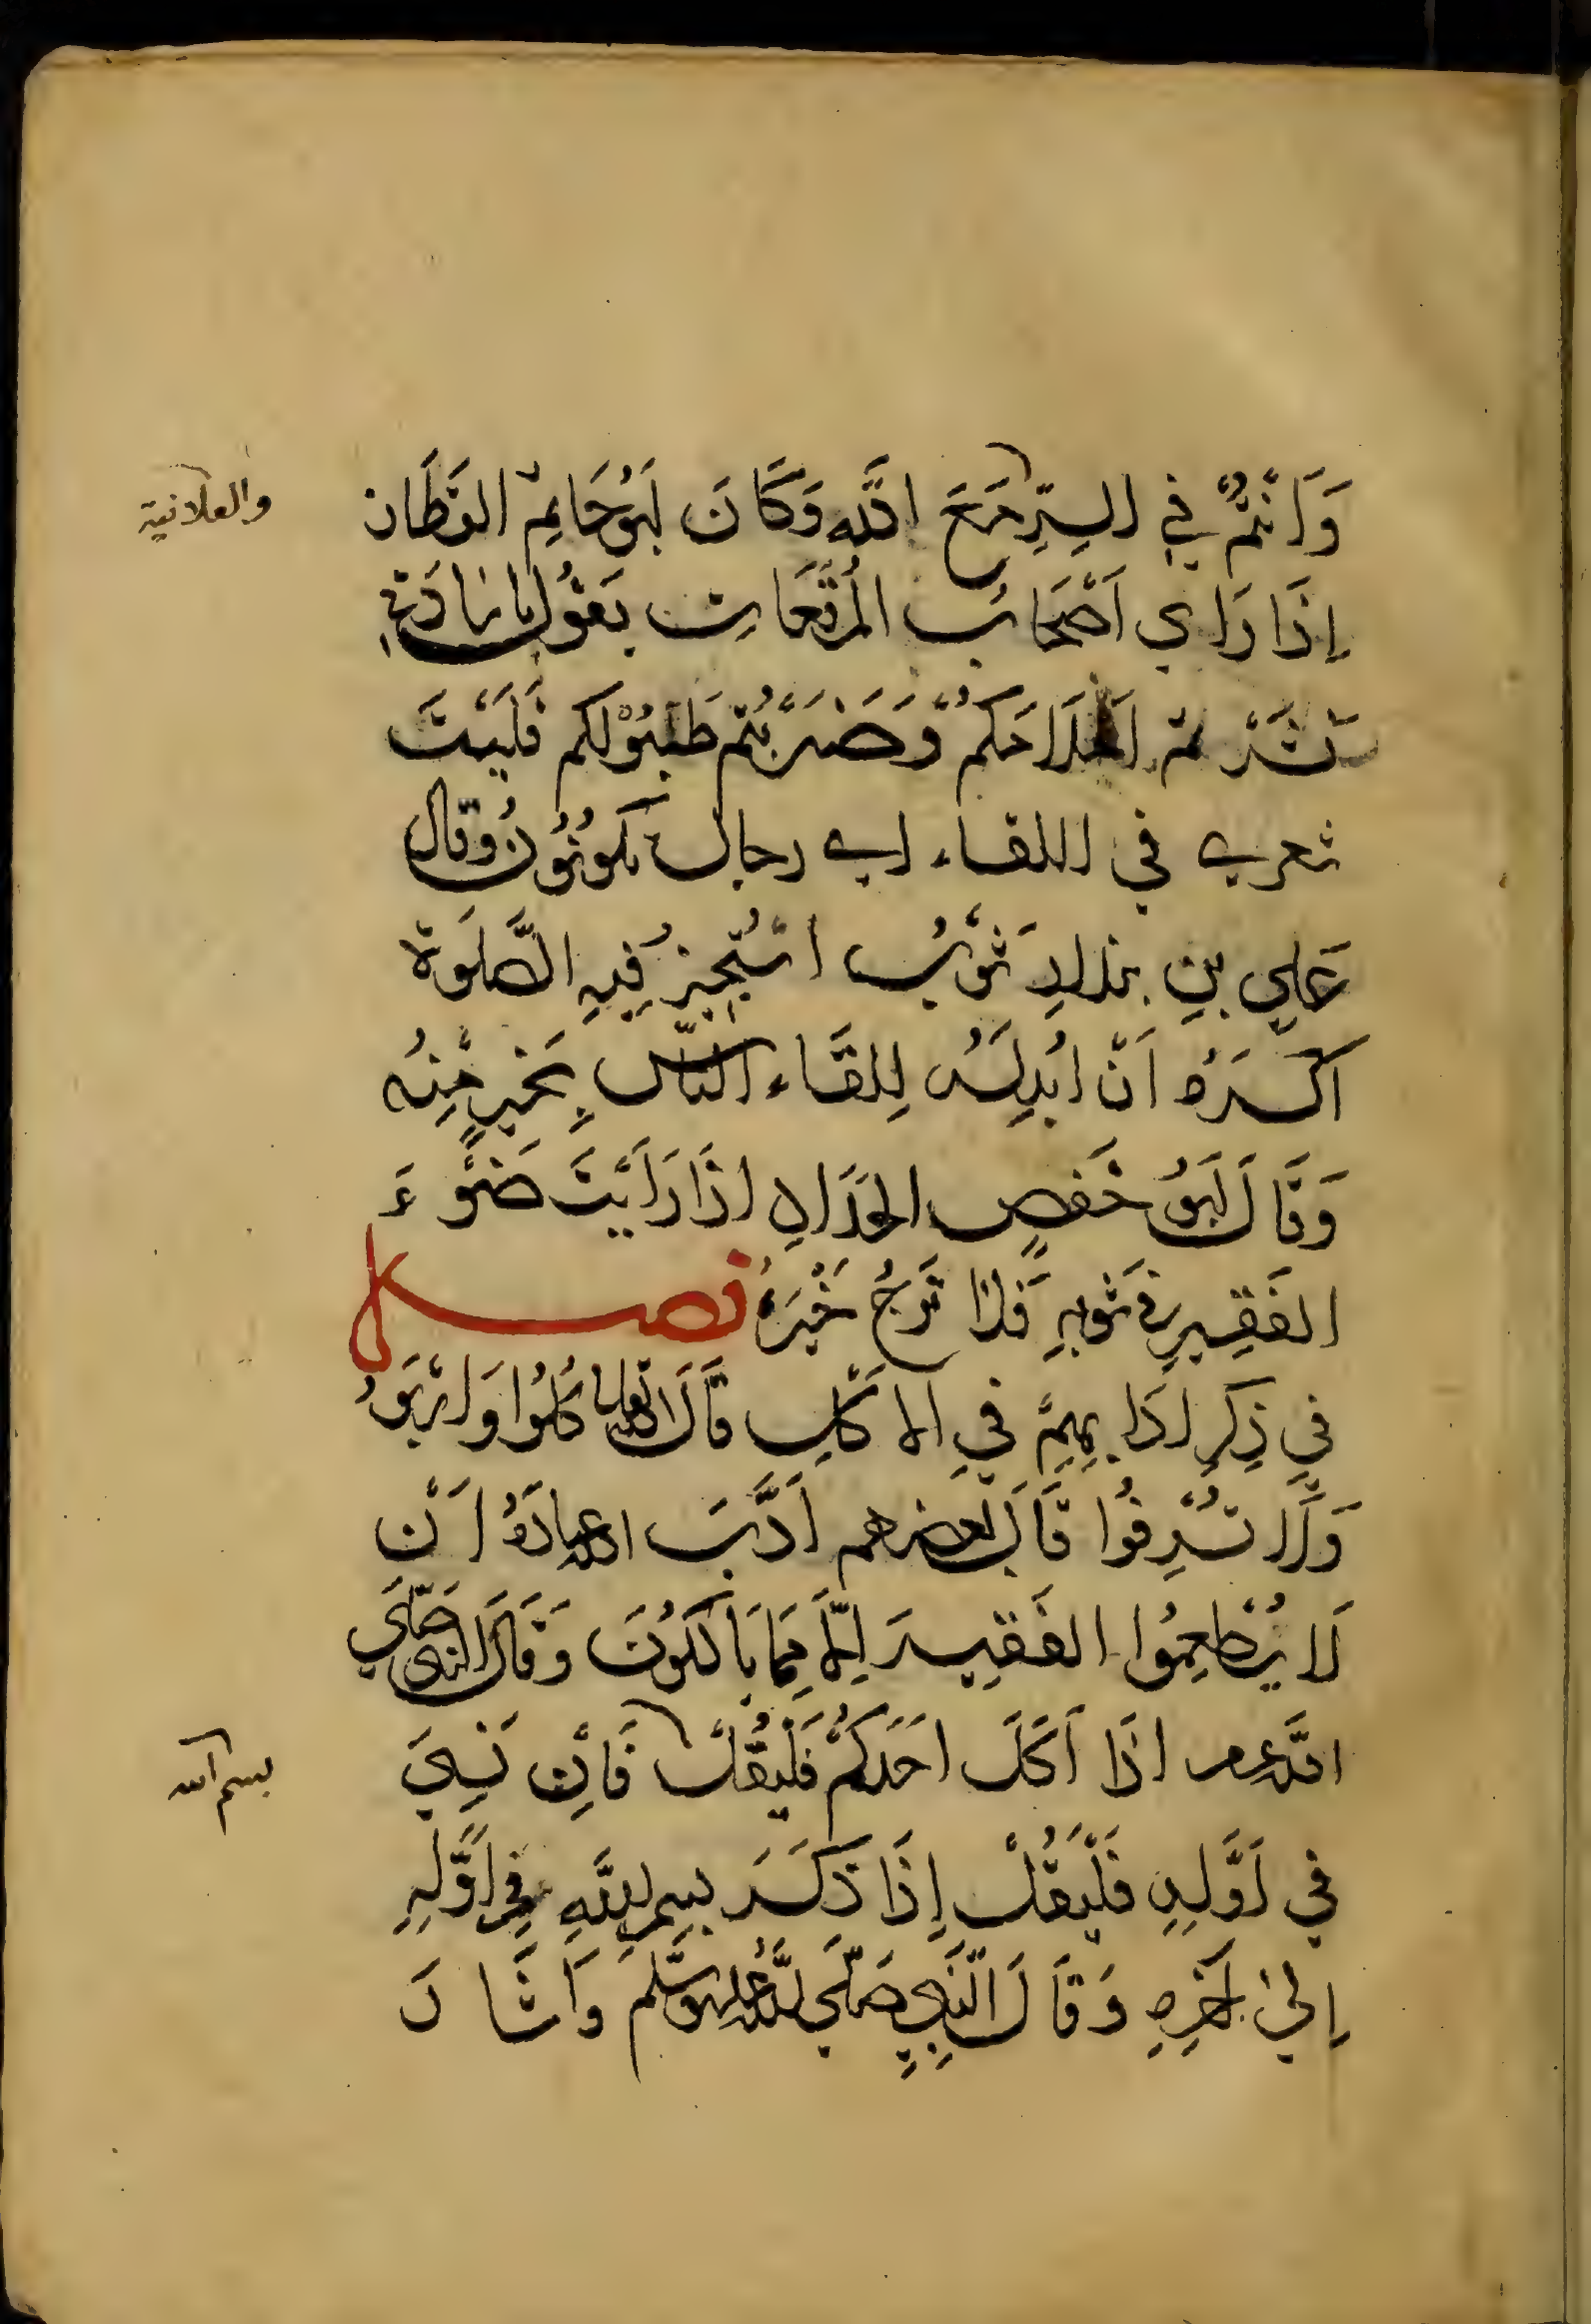 وَاَنْتُمْ في السِّرِّ مَعَ اللّه وَكَانَ اَبُو حَاتِمْ القَطَّان
والعلانية
اِذَا رَاي اَصْحَابُ المُرَقَّعَاتِ يَقُولُ يا سَادَتِي
نَشَرْتُمْ اَعْلَامَكُمْ وَضَرَبْتُم طُبُوْلَكُم فَلَيْتَ
شعري في اللقاء اي رجال تكُونُونُ وقال
عَلِي بنِ بندارِ ثَوْبُ اسْتُجِيزُ فِيهِ الصَّلَوة
اكْرَهُ اَنْ اُبْدِلَهُ لِلِقَاء النَّاسِ بِخَيرٍ مِنْه
وَقَالَ اَبُو حَفصٍ الحَدَّادِ اذَا رَاَيْتَ ضَوْءَ
الفَقِيرِ في ثَوبِهِ فَلا تَرجُ خَيْرَهُ فصل
في ذِكرِ ادَابِهِمْ فيِ الاكْلِ قَالَ الله تعالى كُلُوا وَاشْرَبُوا
وَلَا تُسْرِفُوا قَالَ بعضهم اَدَّبَ الله عبادَهُ اَنْ
لَا يُطْعِمُوا الفَقِيرَ اِلَّا مِمَّا يَاكلُوْنَ وَقَالَ النبي صَلّي
الله عم اذَا اَكَلَ احَدَكُمْ فَلْيَقُلْ فَاِنْ نَسِيَ
بسم الله
في اَوَّلِهِ فَلْيَقُلْ اِذَا ذَكَرَ بِسمِ اللَّهِ فِي اَوَّلِهِ
اِلي اَخِرِهِ وَقَالَ النَّبِي صَلّي اللَّهُ عليه وسَلَّمَ وَاَشَارَ